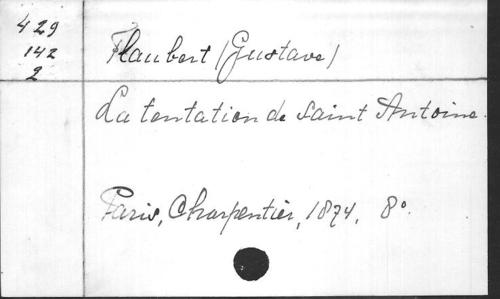 429
142
2
Flaubert (Gustave)
La tentation de Saint Antoine.
Paris, Charpentier, 1874, 8°.